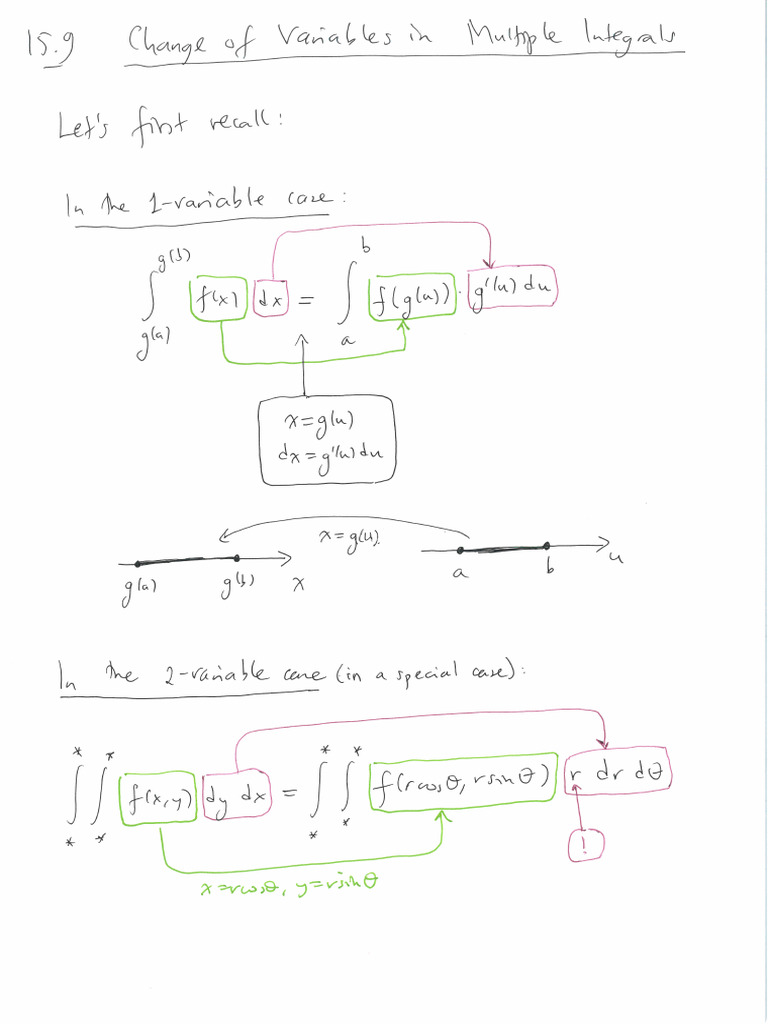 15.9 Change of Variables in Multiple Integrals
Let's first recall:
In the 1-variable case:
∫_{g(a)}^{g(b)} f(x) dx = ∫_a^b f(g(u)) · g'(u) du
x = g(u)
dx = g'(u) du
x = g(u)
g(a) g(b) x a b u
In the 2-variable case (in a special case):
∫_*^* ∫_*^* f(x,y) dy dx = ∫_*^* ∫_*^* f(r cosθ, r sinθ) r dr dθ
!
x = r cosθ, y = r sinθ